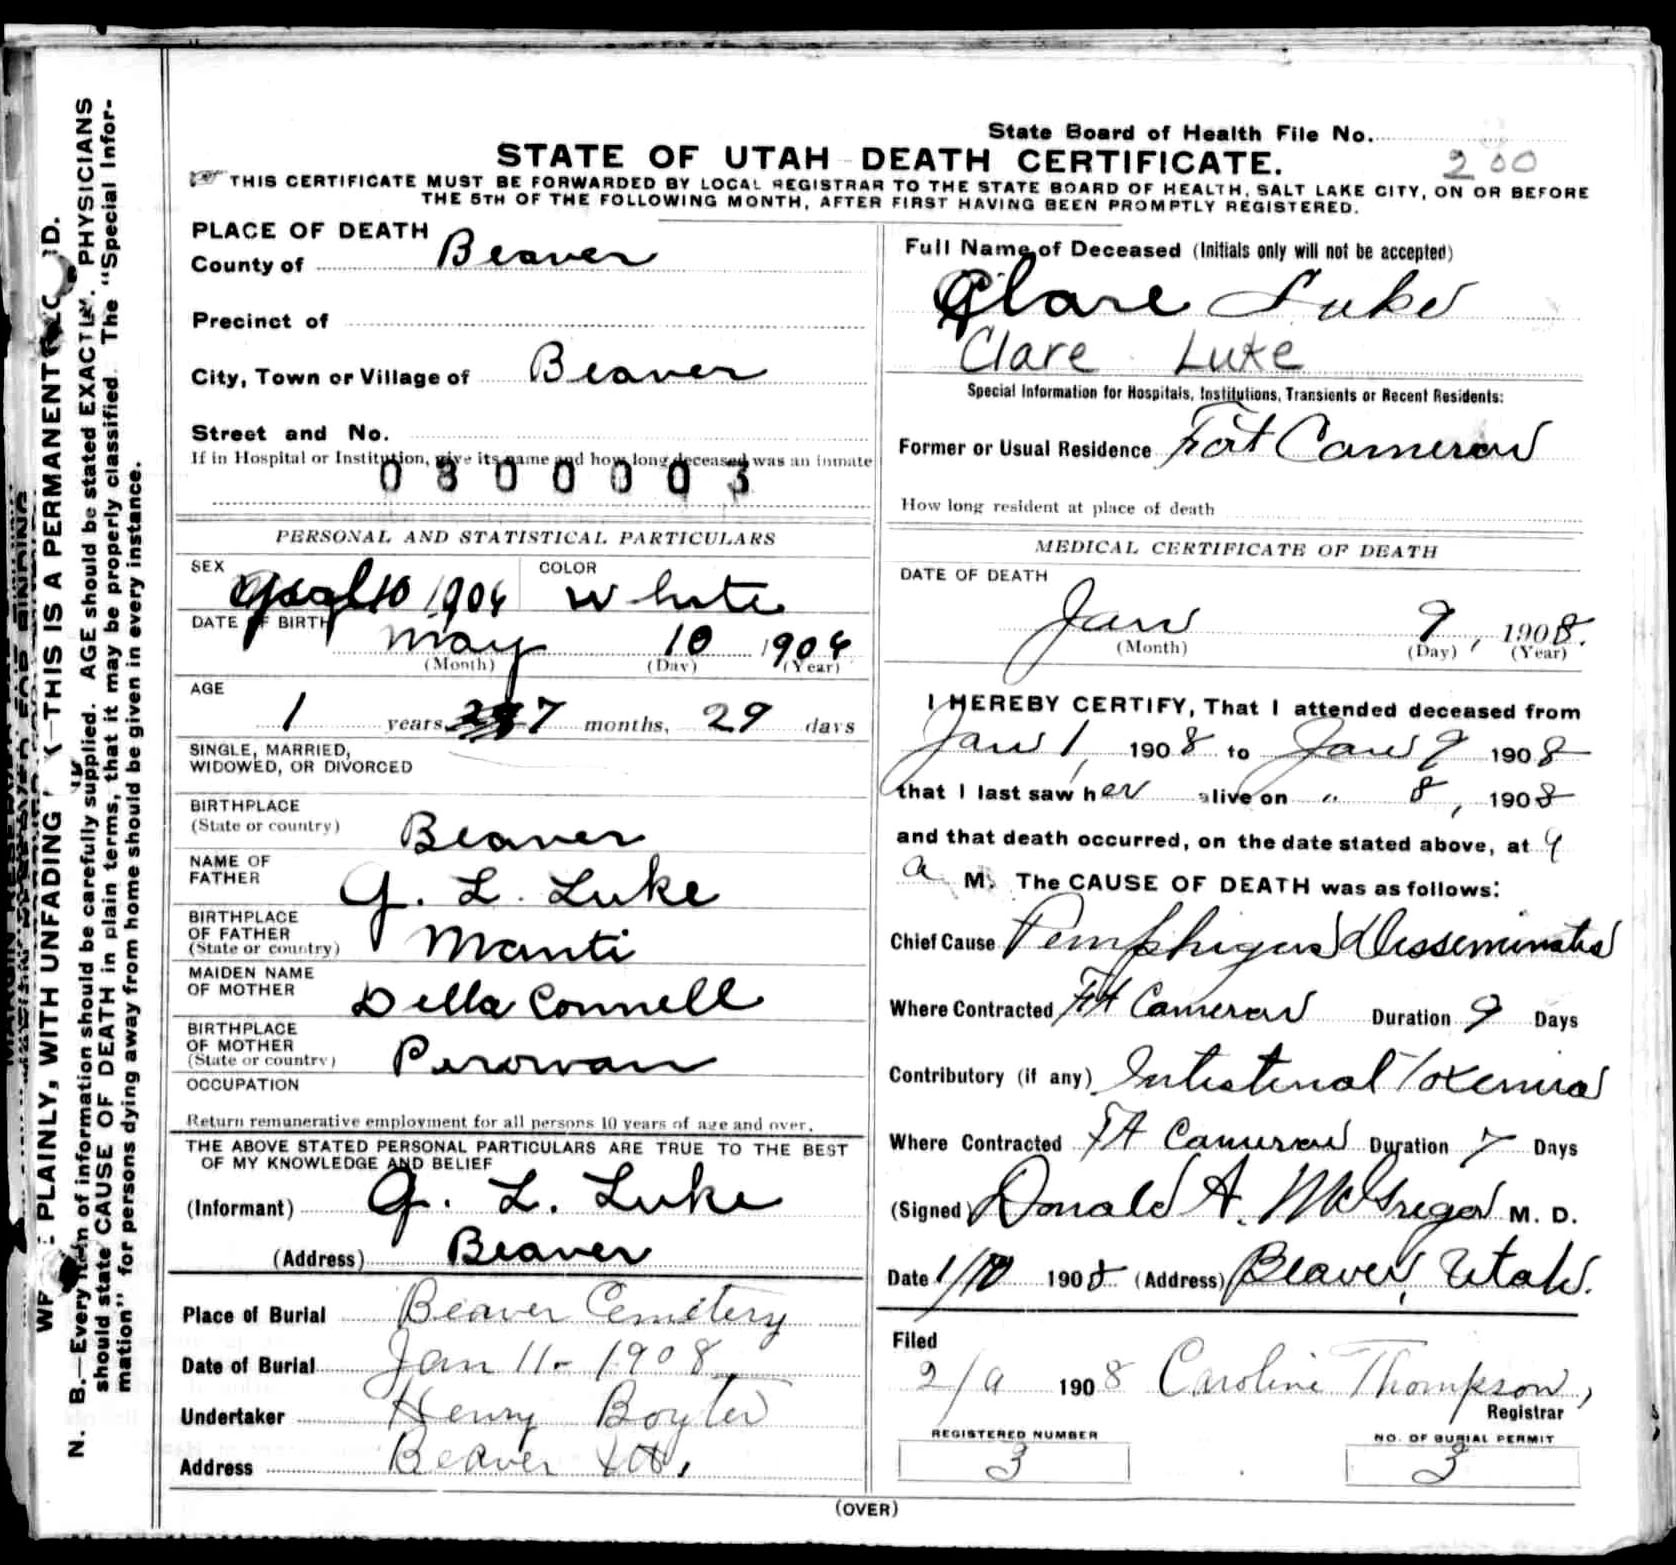 State Board of Health File No.
200
STATE OF UTAH DEATH CERTIFICATE.
THIS CERTIFICATE MUST BE FORWARDED BY LOCAL REGISTRAR TO THE STATE BOARD OF HEALTH, SALT LAKE CITY, ON OR BEFORE
THE 5TH OF THE FOLLOWING MONTH, AFTER FIRST HAVING BEEN PROMPTLY REGISTERED.
PLACE OF DEATH
County of Beaver
Precinct of
City, Town or Village of Beaver
Street and No.
If in Hospital or Institution, give its name and how long deceased was an inmate
0300003
PERSONAL AND STATISTICAL PARTICULARS
SEX
10 1906
COLOR
White
DATE OF BIRTH
May 10 1906
(Month) (Day) (Year)
AGE
1 years 7 months, 29 days
SINGLE, MARRIED,
WIDOWED, OR DIVORCED
BIRTHPLACE
(State or country) Beaver
NAME OF
FATHER G. L. Luke
BIRTHPLACE
OF FATHER
(State or country) Manti
MAIDEN NAME
OF MOTHER Della Connell
BIRTHPLACE
OF MOTHER
(State or country) Perowan
OCCUPATION
Return remunerative employment for all persons 10 years of age and over.
THE ABOVE STATED PERSONAL PARTICULARS ARE TRUE TO THE BEST
OF MY KNOWLEDGE AND BELIEF
(Informant) G. L. Luke
(Address) Beaver
Place of Burial Beaver Cemetery
Date of Burial Jan 11- 1908
Undertaker Henry Boyter
Address Beaver Ut.
Full Name of Deceased (Initials only will not be accepted)
Clare Luke
Clare Luke
Special Information for Hospitals, Institutions, Transients or Recent Residents:
Former or Usual Residence Fort Cameron
How long resident at place of death
MEDICAL CERTIFICATE OF DEATH
DATE OF DEATH
Jan 9, 1908.
(Month) (Day) (Year)
I HEREBY CERTIFY, That I attended deceased from
Jan 1, 1908 to Jan 9 1908
that I last saw her alive on " 8, 1908
and that death occurred, on the date stated above, at 4
a M. The CAUSE OF DEATH was as follows:
Chief Cause Pemphigus Disseminatus
Where Contracted Ft Cameron Duration 9 Days
Contributory (if any) Intestinal Toxemia
Where Contracted Ft Cameron Duration 7 Days
(Signed) Donald A. McGregor M. D.
Date 1/10 1908 (Address) Beaver, Utah.
Filed
2/9 1908 Caroline Thompson,
Registrar
REGISTERED NUMBER
3
NO. OF BURIAL PERMIT
3
(OVER)
PLAINLY, WITH UNFADING INK—THIS IS A PERMANENT RECORD.
N. B.—Every item of information should be carefully supplied. AGE should be stated EXACTLY. PHYSICIANS
should state CAUSE OF DEATH in plain terms, that it may be properly classified. The "Special Infor-
mation" for persons dying away from home should be given in every instance.